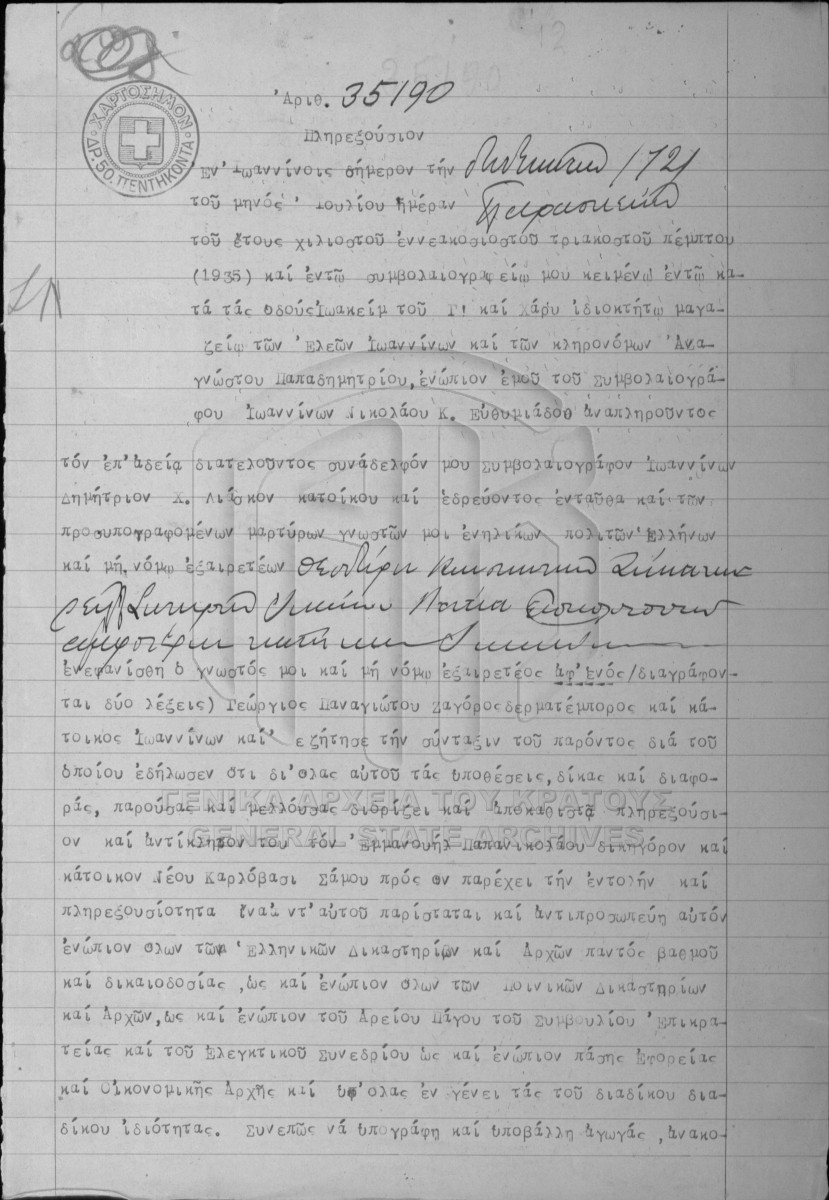 ΧΑΡΤΟΣΗΜΟΝ
ΔΡ. 50. ΠΕΝΤΗΚΟΝΤΑ
Ἀριθ. 35190
Πληρεξούσιον
Ἐν Ἰωαννίνοις σήμερον τήν δωδεκάτην /12/
τοῦ μηνός Ἰουλίου ἡμέραν Παρασκευήν
τοῦ ἔτους χιλιοστοῦ ἐννεακοσιοστοῦ τριακοστοῦ πέμπτου
(1935) καί ἐντῷ συμβολαιογραφείῳ μου κειμένῳ ἐντῷ κα-
τά τάς ὁδούς Ἰωακείμ τοῦ Γ! καί Χάρυ ἰδιοκτήτῳ μαγα-
ζείῳ τῶν Ἐλεῶν Ἰωαννίνων καί τῶν κληρονόμων Ἀνα-
γνώστου Παπαδημητρίου, ἐνώπιον ἐμοῦ τοῦ Συμβολαιογρά-
φου Ἰωαννίνων Νικολάου Κ. Εὐθυμιάδου ἀναπληροῦντος
τόν ἐπ' ἀδείᾳ διατελοῦντος συνάδελφόν μου Συμβολαιογράφον Ἰωαννίνων
Δημήτριον Χ. Λιάσκον κατοίκου καί ἑδρεύοντος ἐνταῦθα καί τῶν
προσυπογραφομένων μαρτύρων γνωστῶν μοι ἐνηλίκων πολιτῶν Ἑλλήνων
καί μή νόμῳ ἐξαιρετέων
ἐνεφανίσθη ὁ γνωστός μοι καί μή νόμῳ ἐξαιρετέος ἀφ' ἑνός /διαγράφον-
ται δύο λέξεις) Γεώργιος Παναγιώτου Ζαγόρος δερματέμπορος καί κά-
τοικος Ἰωαννίνων καί' εζήτησε τήν σύνταξιν τοῦ παρόντος διά τοῦ
ὁποίου ἐδήλωσεν ὅτι δι' ὅλας αὐτοῦ τάς ὑποθέσεις, δίκας καί διαφο-
ράς, παρούσας καί μελλούσας διορίζει καί ἀποκαθιστᾶ πληρεξούσι-
ον καί ἀντίκλητον του τόν Ἐμμανουήλ Παπανικολάου δικηγόρον καί
κάτοικον Νέου Καρλόβασι Σάμου πρός ὅν παρέχει τήν ἐντολήν καί
πληρεξουσιότητα ἵνα ἀντ' αὐτοῦ παρίσταται καί ἀντιπροσωπεύῃ αὐτόν
ἐνώπιον ὅλων τῶν Ἑλληνικῶν Δικαστηρίων καί Ἀρχῶν παντός βαθμοῦ
καί δικαιοδοσίας, ὡς καί ἐνώπιον ὅλων τῶν Ποινικῶν Δικαστηρίων
καί Ἀρχῶν, ὡς καί ἐνώπιον τοῦ Ἀρείου Πάγου τοῦ Συμβουλίου Ἐπικρα-
τείας καί τοῦ Ἐλεγκτικοῦ Συνεδρίου ὡς καί ἐνώπιον πάσης Ἐφορείας
καί Οἰκονομικῆς Ἀρχῆς καί ὑφ' ὅλας ἐν γένει τάς τοῦ διαδίκου δια-
δίκου ἰδιότητας. Συνεπῶς νά ὑπογράφῃ καί ὑποβάλλῃ ἀγωγάς, ἀνακο-
ΓΕΝΙΚΑ ΑΡΧΕΙΑ ΤΟΥ ΚΡΑΤΟΥΣ
GENERAL STATE ARCHIVES